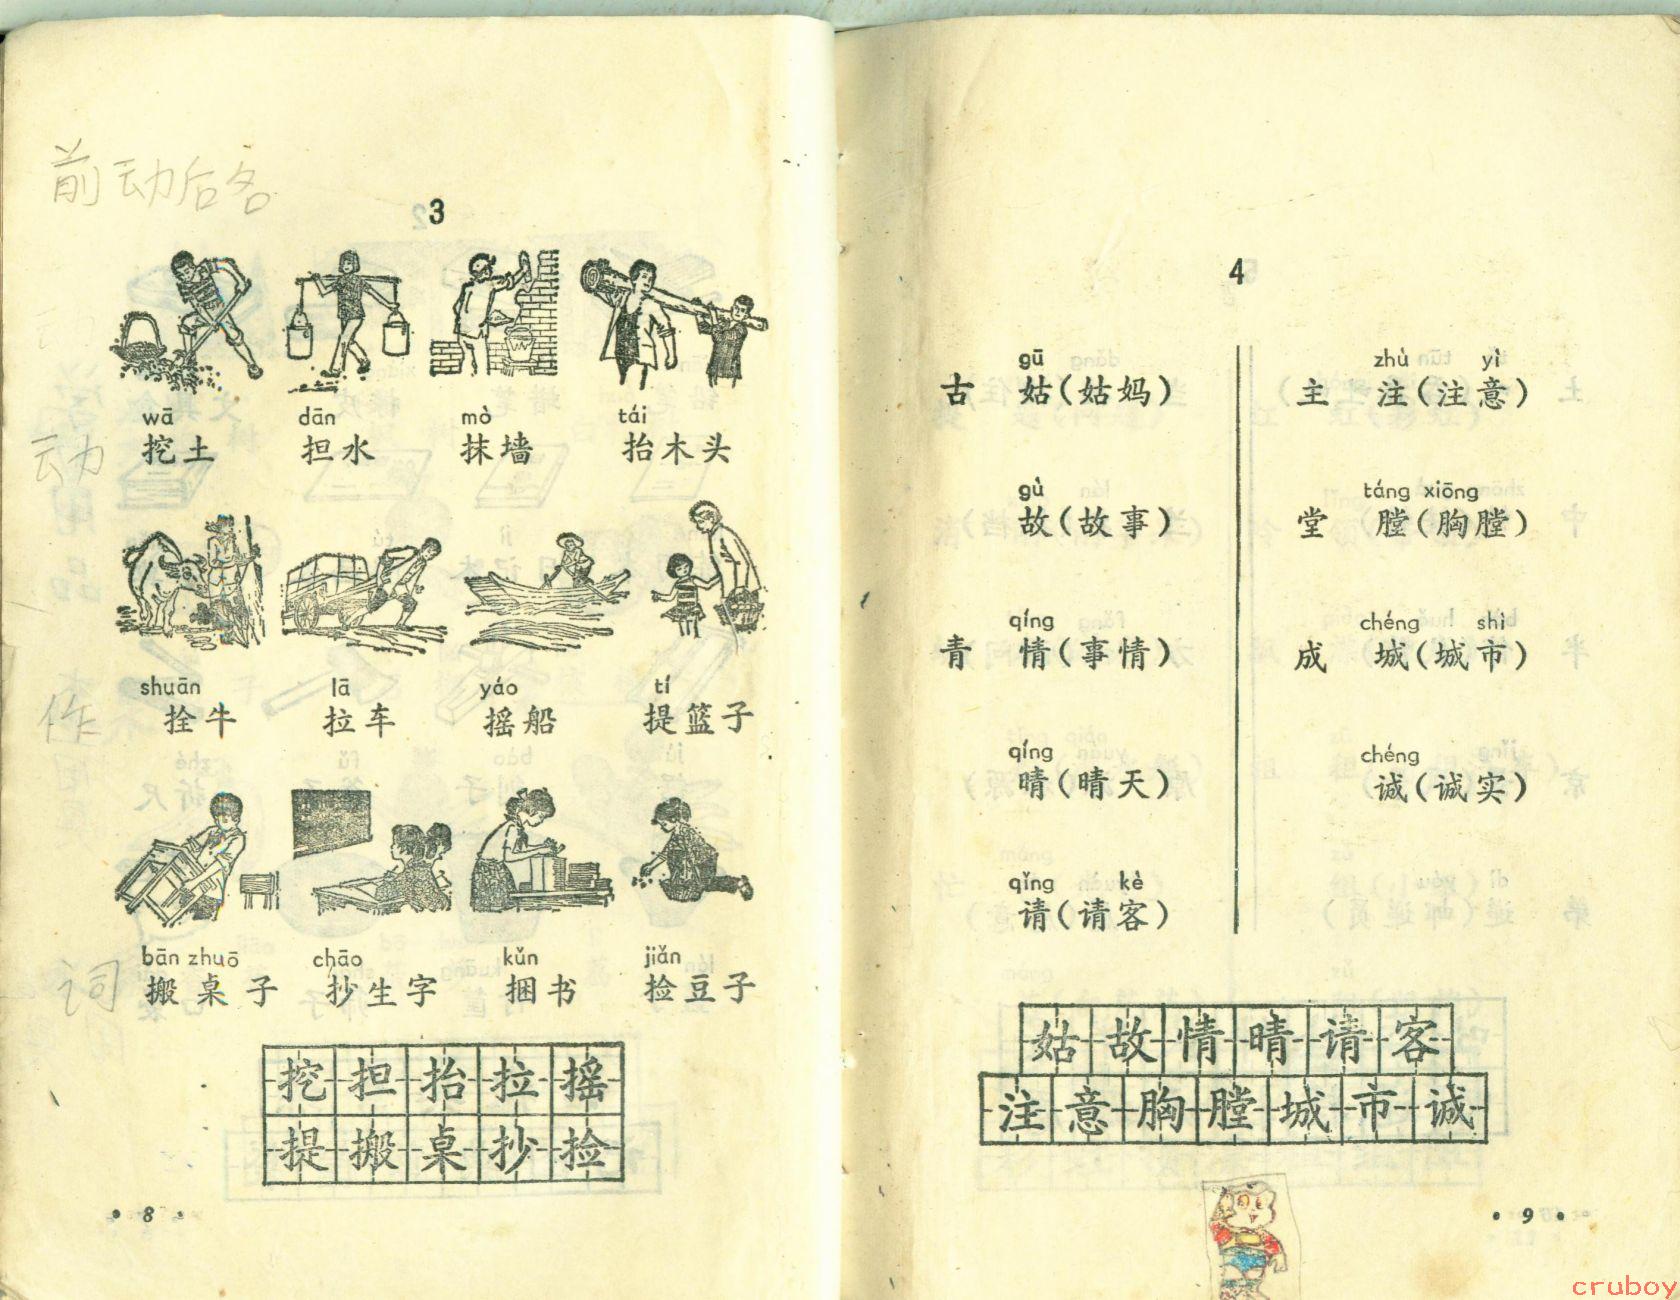 前动后名
3
wā dān mò tái
挖土 担水 抹墙 抬木头
动
shuān lā yáo tí
拴牛 拉车 摇船 提篮子
作
bān zhuō chāo kǔn jiǎn
搬桌子 抄生字 捆书 捡豆子
词
挖担抬拉摇
提搬桌抄捡
• 8 •
4
gū zhù yì
古 姑(姑妈) 主 注(注意)
gù táng xiōng
故(故事) 堂 膛(胸膛)
qíng chéng shì
青 情(事情) 成 城(城市)
qíng chéng
晴(晴天) 诚(诚实)
qǐng kè
请(请客)
姑故情晴请客
注意胸膛城市诚
• 9 •
cruboy